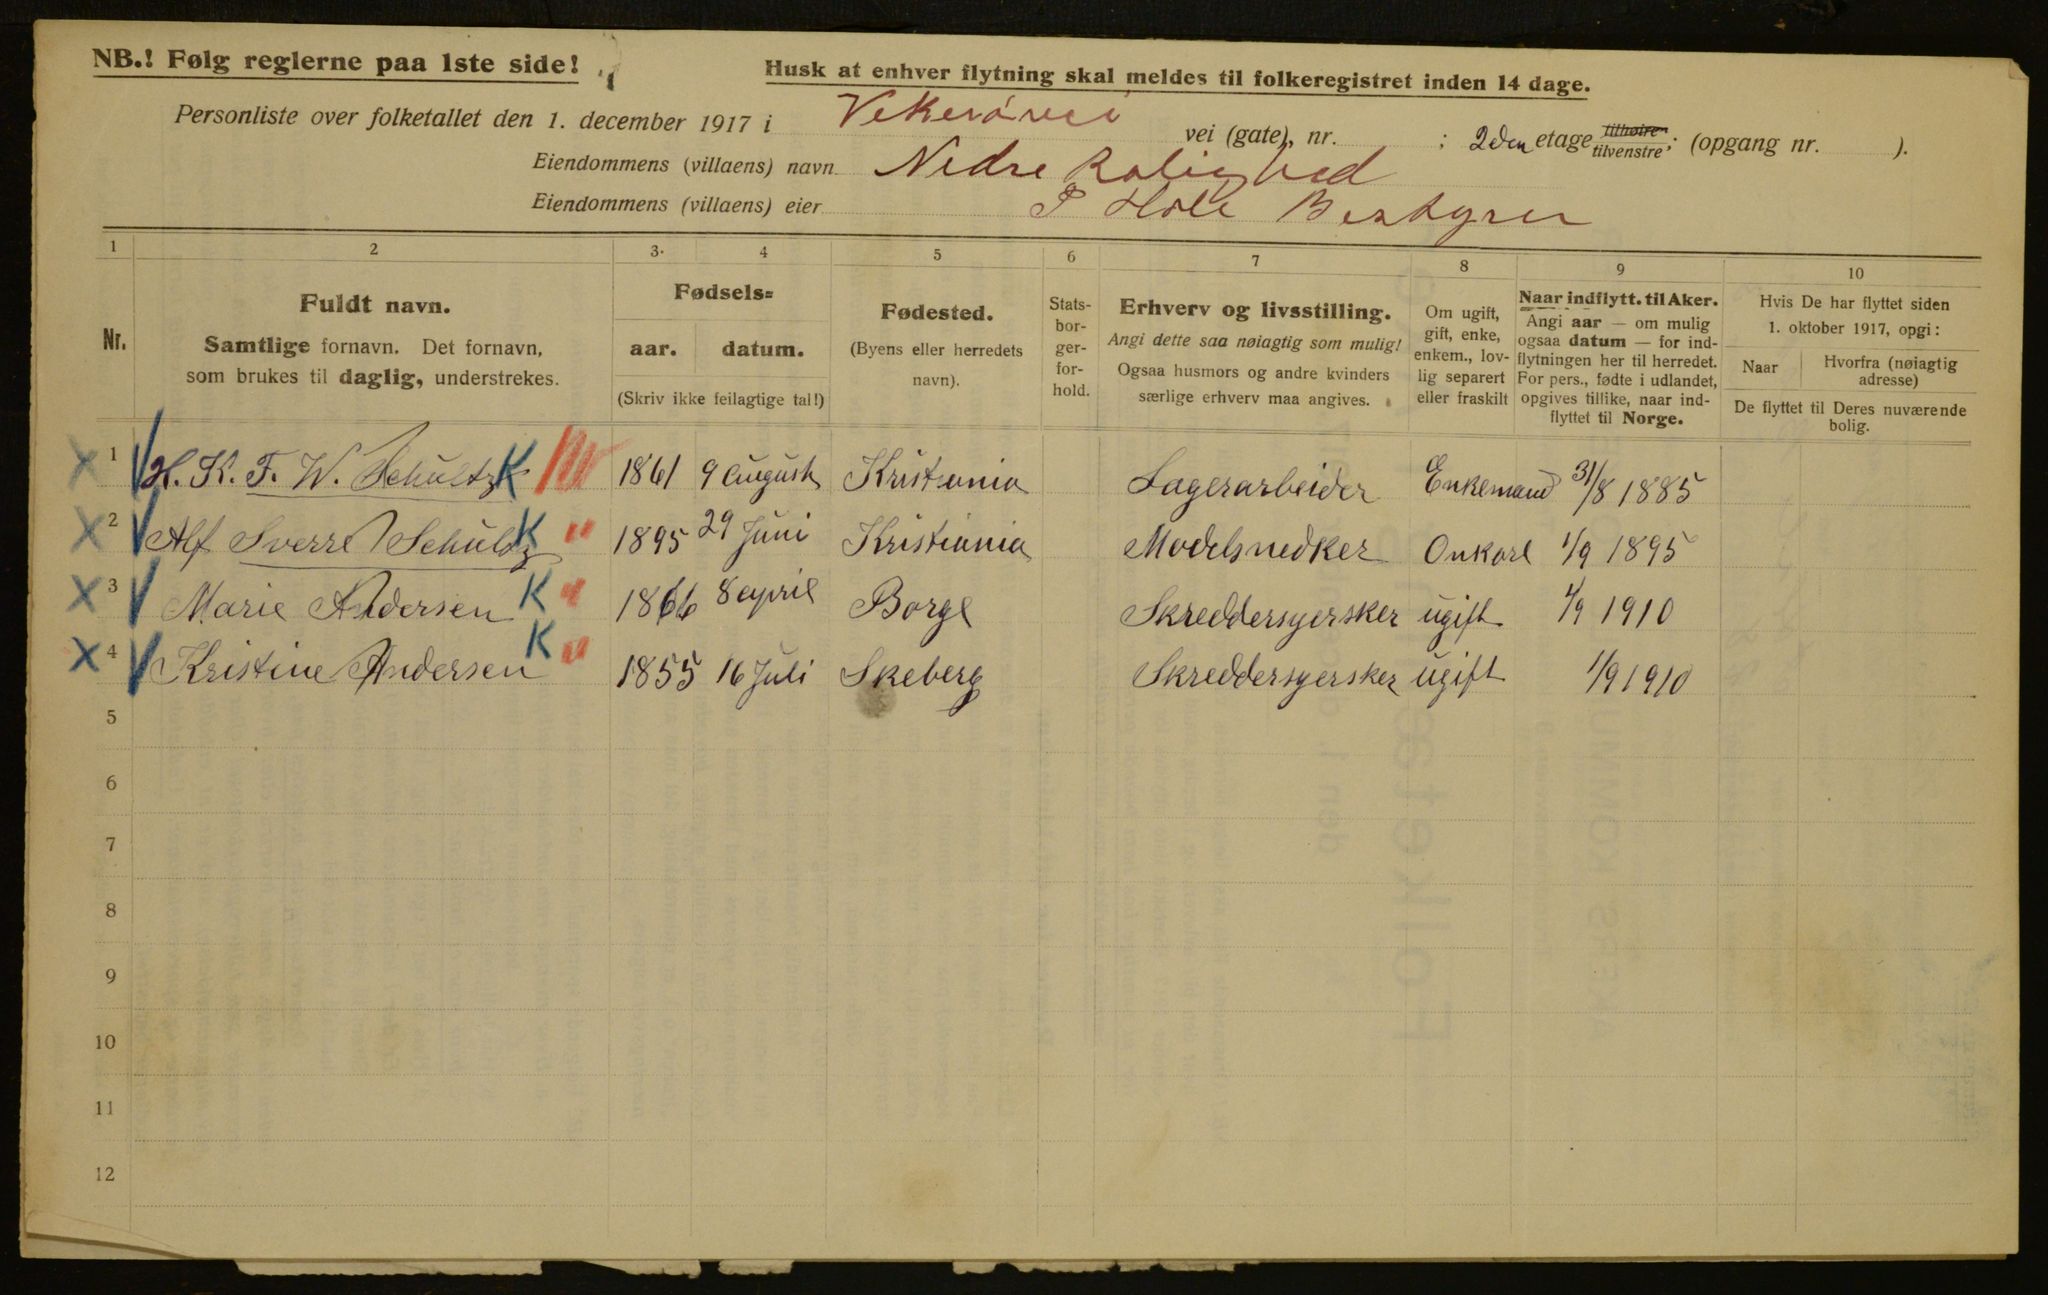 NB.! Følg reglerne paa 1ste side!
Husk at enhver flytning skal meldes til folkeregistret inden 14 dage.
Personliste over folketallet den 1. december 1917 i Vekerövei vei (gate), nr. ; 2den etage tilhøire tilvenstre; (opgang nr. ).
Eiendommens (villaens) navn Nedre Rolighed
Eiendommens (villaens) eier P Hole Bestyrer
1 2 3. 4 5 6 7 8 9 10
Nr.
Fuldt navn.
Samtlige fornavn. Det fornavn,
som brukes til daglig, understrekes.
Fødsels=
aar. datum.
(Skriv ikke feilagtige tal!)
Fødested.
(Byens eller herredets
navn).
Stats-
bor-
ger-
for-
hold.
Erhverv og livsstilling.
Angi dette saa nøiagtig som mulig!
Ogsaa husmors og andre kvinders
særlige erhverv maa angives.
Om ugift,
gift, enke,
enkem., lov-
lig separert
eller fraskilt
Naar indflytt. til Aker.
Angi aar — om mulig
ogsaa datum — for ind-
flytningen her til herredet.
For pers., fødte i udlandet,
opgives tillike, naar ind-
flyttet til Norge.
Hvis De har flyttet siden
1. oktober 1917, opgi:
Naar
Hvorfra (nøiagtig
adresse)
De flyttet til Deres nuværende
bolig.
X 1 H. K. F. W. Schultz K 1861 9 August Kristiania Lagerarbeider Enkemand 31/8 1885
X 2 Alf Sverre Schultz K " 1895 29 Juni Kristiania Modelsnedker Onkarl 1/9 1895
X 3 Marie Andersen K " 1866 8 april Borge Skreddersyersker ugift 1/9 1910
X 4 Kristine Andersen K " 1855 16 Juli Skeberg Skreddersyersker ugift 1/9 1910
5
6
7
8
9
10
11
12